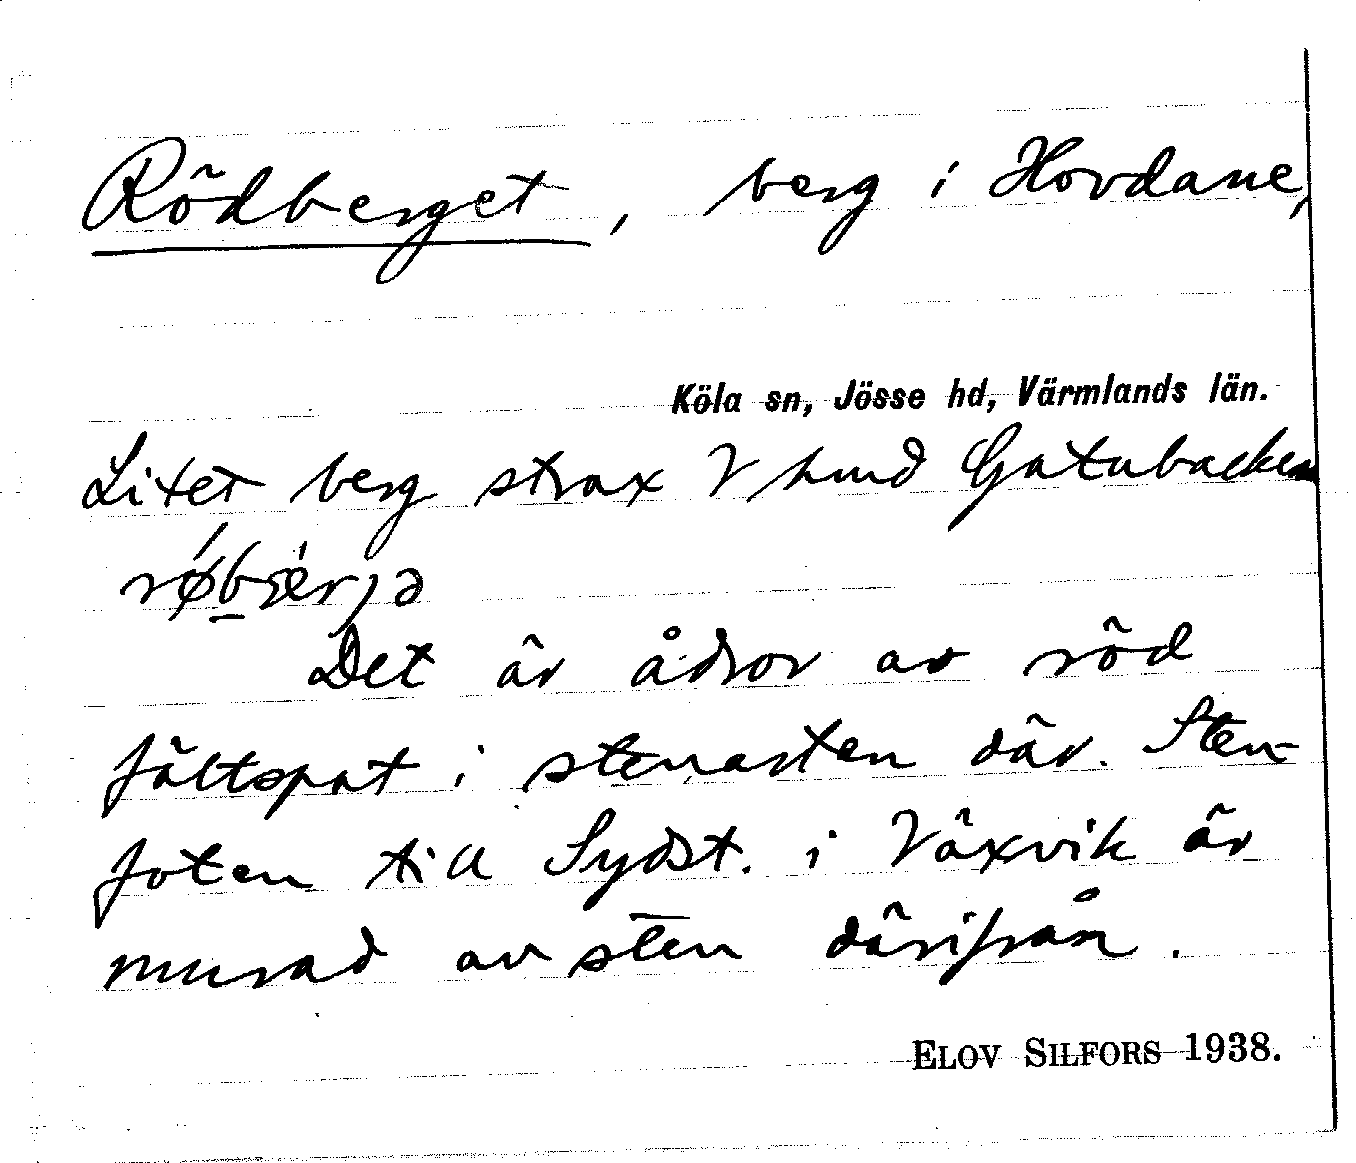 Rödberget, berg i Hovdane,
Köla sn, Jösse hd, Värmlands län.
Litet berg strax V hmd Gatubacken
Det är ådror av röd
fältspat i stenarten där. Sten-
foten till Sydst. i Växvik är
murad av sten därifrån.
ELOV SILFORS 1938.